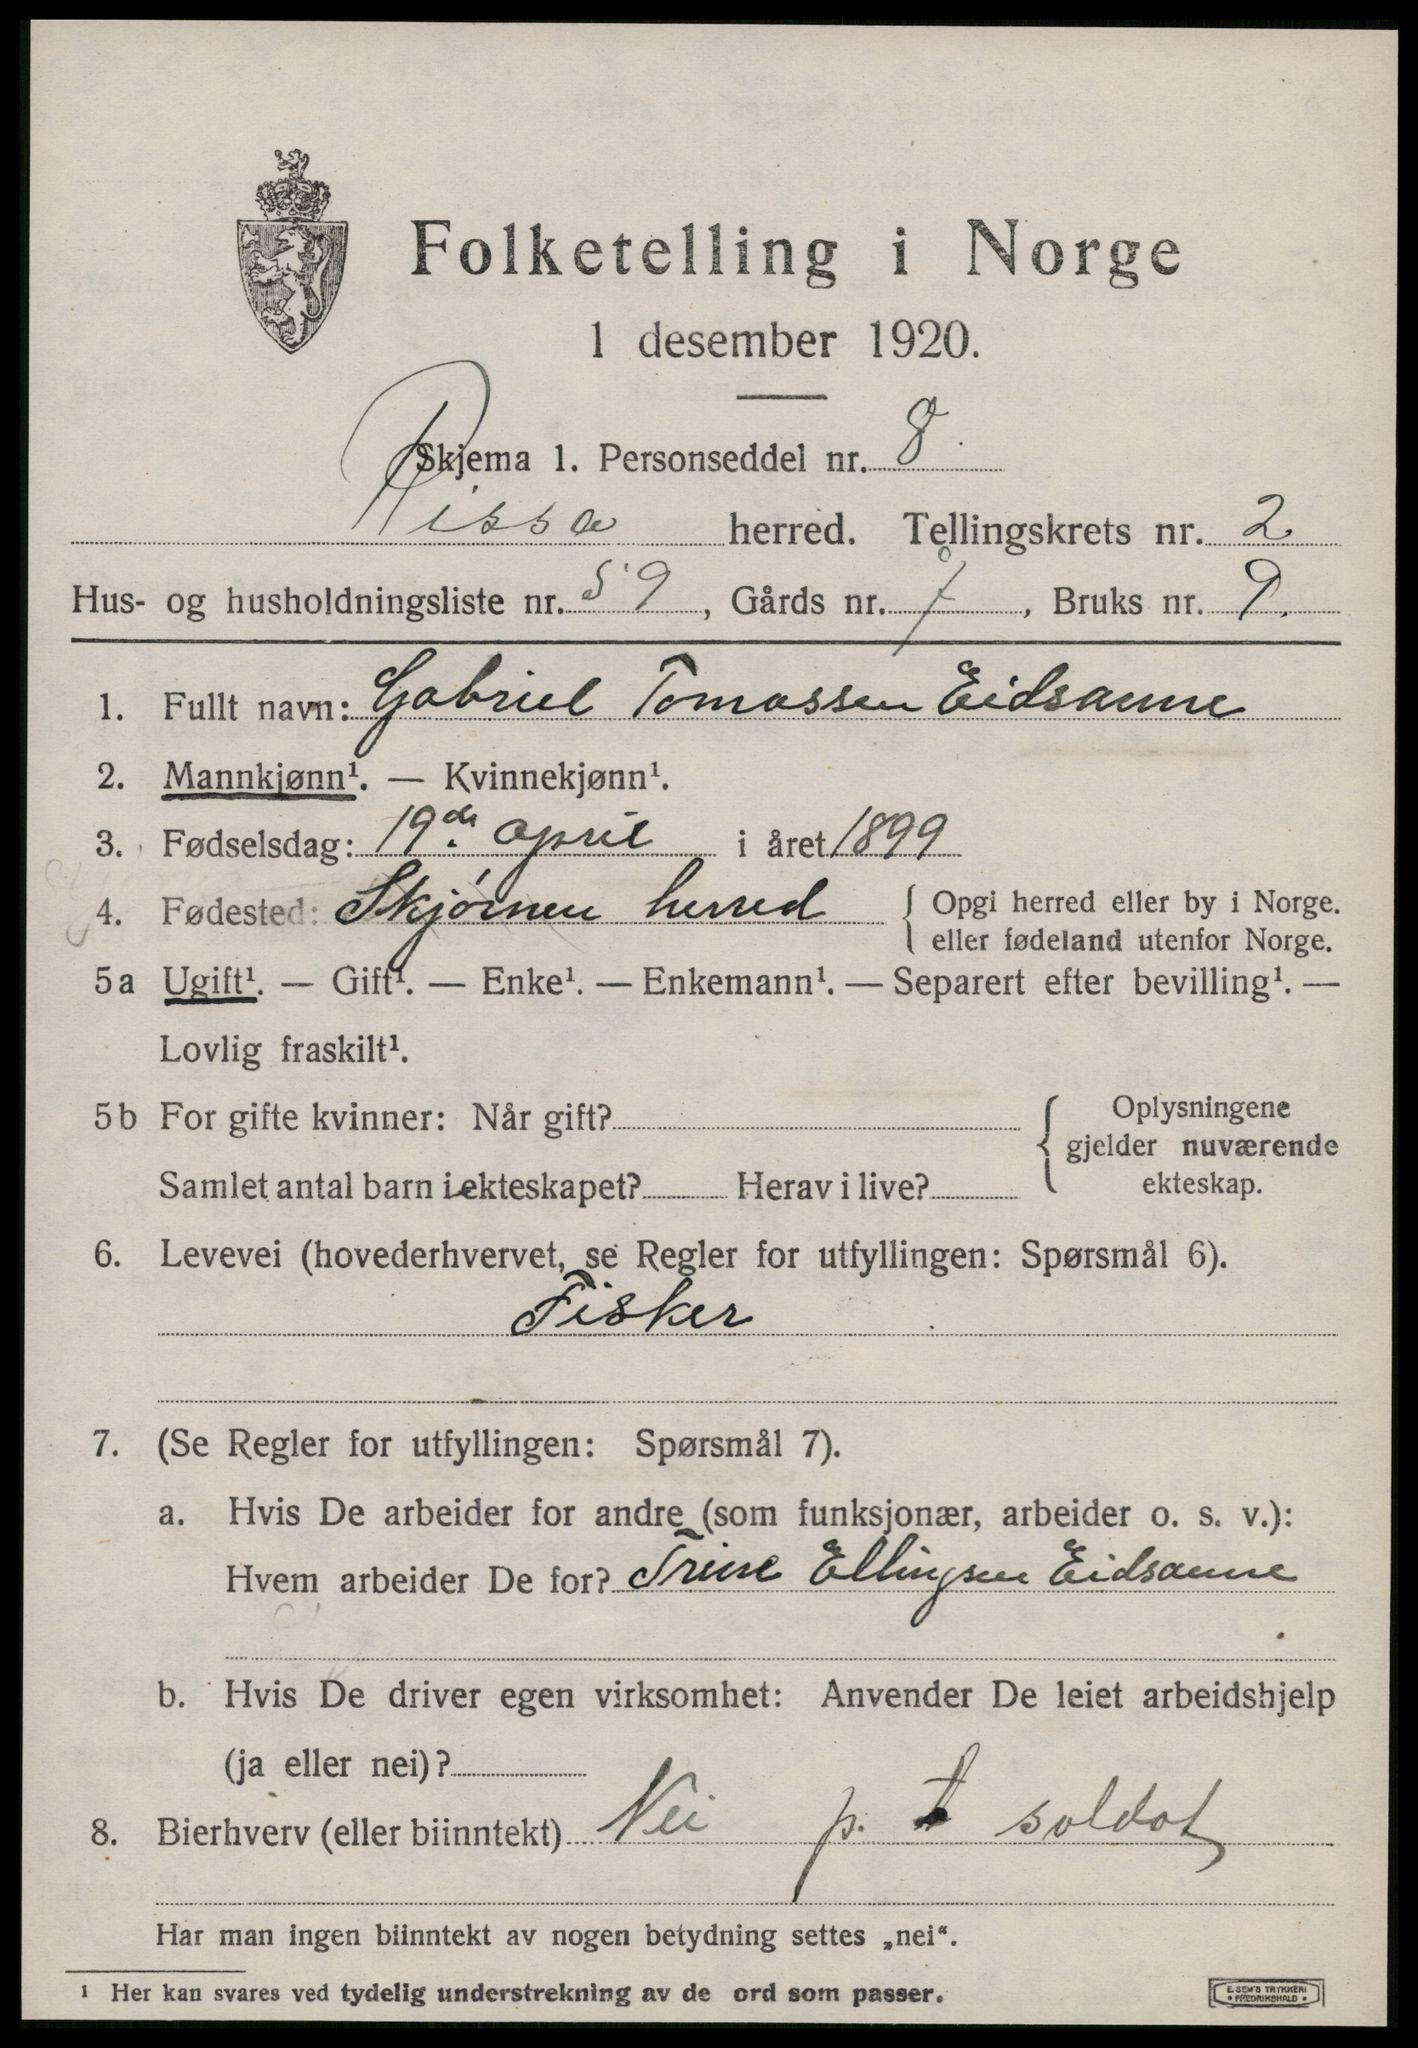 Folketelling i Norge
1 desember 1920.
Skjema 1. Personseddel nr. 8.
Rissa herred. Tellingskrets nr. 2
Hus- og husholdningsliste nr. 59, Gårds nr. 7, Bruks nr. 9.
1. Fullt navn: Gabriel Tomassen Eidsaune
2. Mannkjønn¹. — Kvinnekjønn¹.
3. Fødselsdag: 19de april i året 1899
4. Fødested: Skjørnen herred { Opgi herred eller by i Norge.
eller fødeland utenfor Norge.
5a Ugift¹. — Gift¹. — Enke¹. — Enkemann¹. — Separert efter bevilling¹. —
Lovlig fraskilt¹.
5b For gifte kvinner: Når gift? { Oplysningene
gjelder nuværende
Samlet antal barn i ekteskapet? Herav i live? ekteskap.
6. Levevei (hovederhvervet, se Regler for utfyllingen: Spørsmål 6).
Fisker
7. (Se Regler for utfyllingen: Spørsmål 7).
a. Hvis De arbeider for andre (som funksjonær, arbeider o. s. v.):
Hvem arbeider De for? Trine Ellingsen Eidsaune
b. Hvis De driver egen virksomhet: Anvender De leiet arbeidshjelp
(ja eller nei)?
8. Bierhverv (eller biinntekt) Nei p. t soldat
Har man ingen biinntekt av nogen betydning settes „nei“.
¹ Her kan svares ved tydelig understrekning av de ord som passer.
E. SEM'S TRYKKERI
FREDRIKSHALD